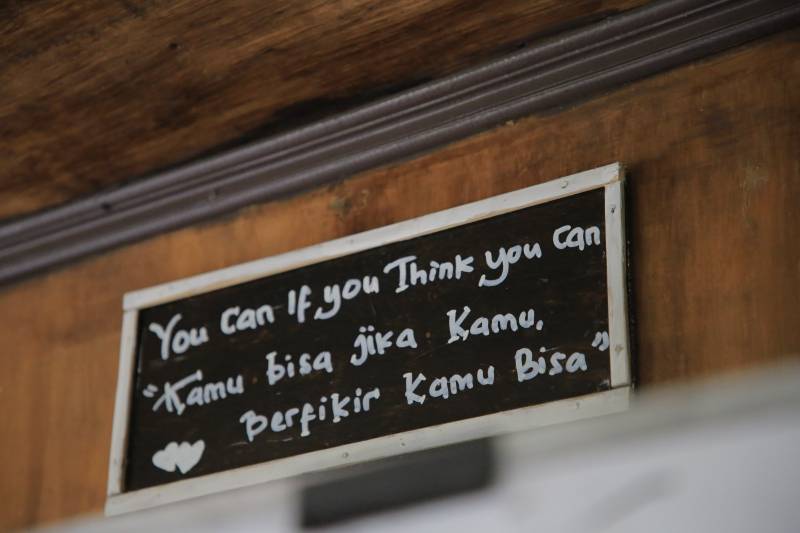 You can If you Think you can
"Kamu bisa jika Kamu.
Berfikir Kamu Bisa"